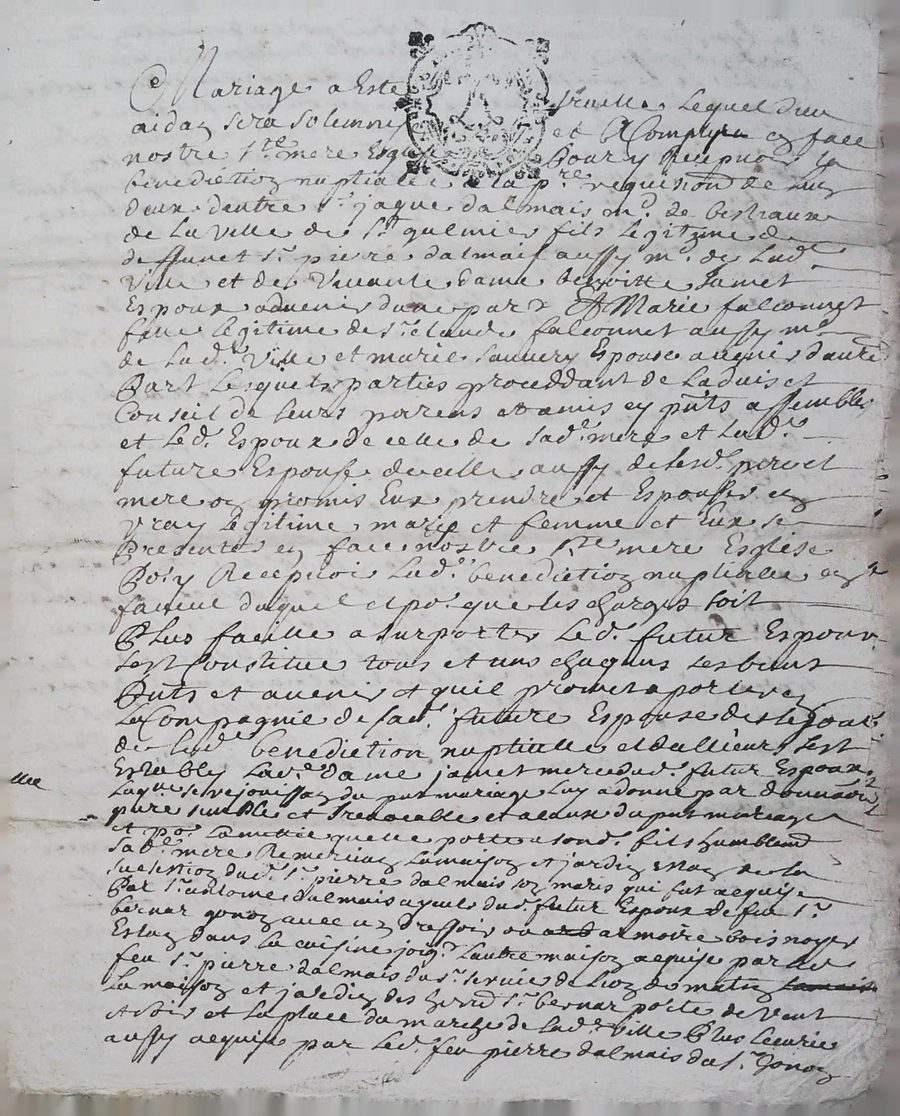 Mariage a Esté traitté Lequel dieu
aidan sera Solennisé et accomply en face
nostre Ste mere Esglise pour y Recepvoir la
benediction nuptialle a la pre requisition de lun
deux dentre Sr jaque dalmais md de bestiaux
de La ville de St galmier fils Legitime de
deffunct Sr pierre dalmais aussy md de Lade
ville et de vivante dame benoitte Jamet
Espoux advenir dune part Et Marie falconnet
fille Legitime de Sr claude falconnet aussy md
de Lade ville et marie Jannery Espouse avenir dautre
Part Lesquels parties proceddant de Laduis et
Conseil de leurs parens et amis en pnts assemblés
et Led. Espoux de celle de sade mere et Lade
future Espouse de celle aussy de sesd. pere et
mere on promis Eux prendre et Espouser en
vray Legitime marie et femme et Eux se
Presenter en face nostre Ste mere Esglise
Po. y Recepvoir Lade benediction nuptialle en
faveur duquel et po. que les charges soit
Plus facille a surporter Led. futur Espoux
sest Constitué tous et uns chaquns ses biens
Pnts et avenir et quil promet aporter en
La Compagnie de sade future Espouse des le jour
de Lade benediction nuptialle et dallieurs sest
Establys Lade dame jamet mere dud. futur Espoux
Laqle se rejouissan du pnt mariage luy a donné par donnation
pure simple et Irrevocable et a cause du pnt mariage
et po. Lamittié quelle porte a sond. fils humblemt
Sade mere Remerciant La maison et jardin Estan de la
succession dud. Sr pierre dalmais son maris qui fut acquise
Par Sr antoine dalmais ayeul dud. futur Espoux de feu Sr
bernar gonon avec un dressoir ou armoire bois noyer
Estan dans la cuisine joigt Lautre maison aquise par led.
feu Sr pierre dalmais du Sr
La maison et jardin des Sr bernar porte de vent
et bize et La place du marché de Lade ville Plus Lecurie
aussy acquise par Led. feu pierre dalmais du Sr Gonon